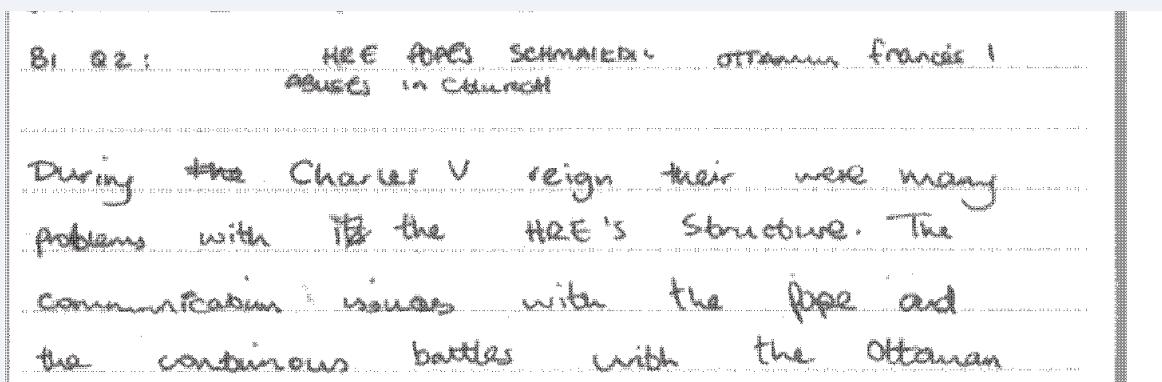 B1 Q2: HRE POPES SCHMALKDL OTTOMAN francis 1
ABUSES in CHURCH
During the Charles V reign their were many
problems with the HRE's Structure. The
communication issues with the pope and
the continous battles with the Ottoman